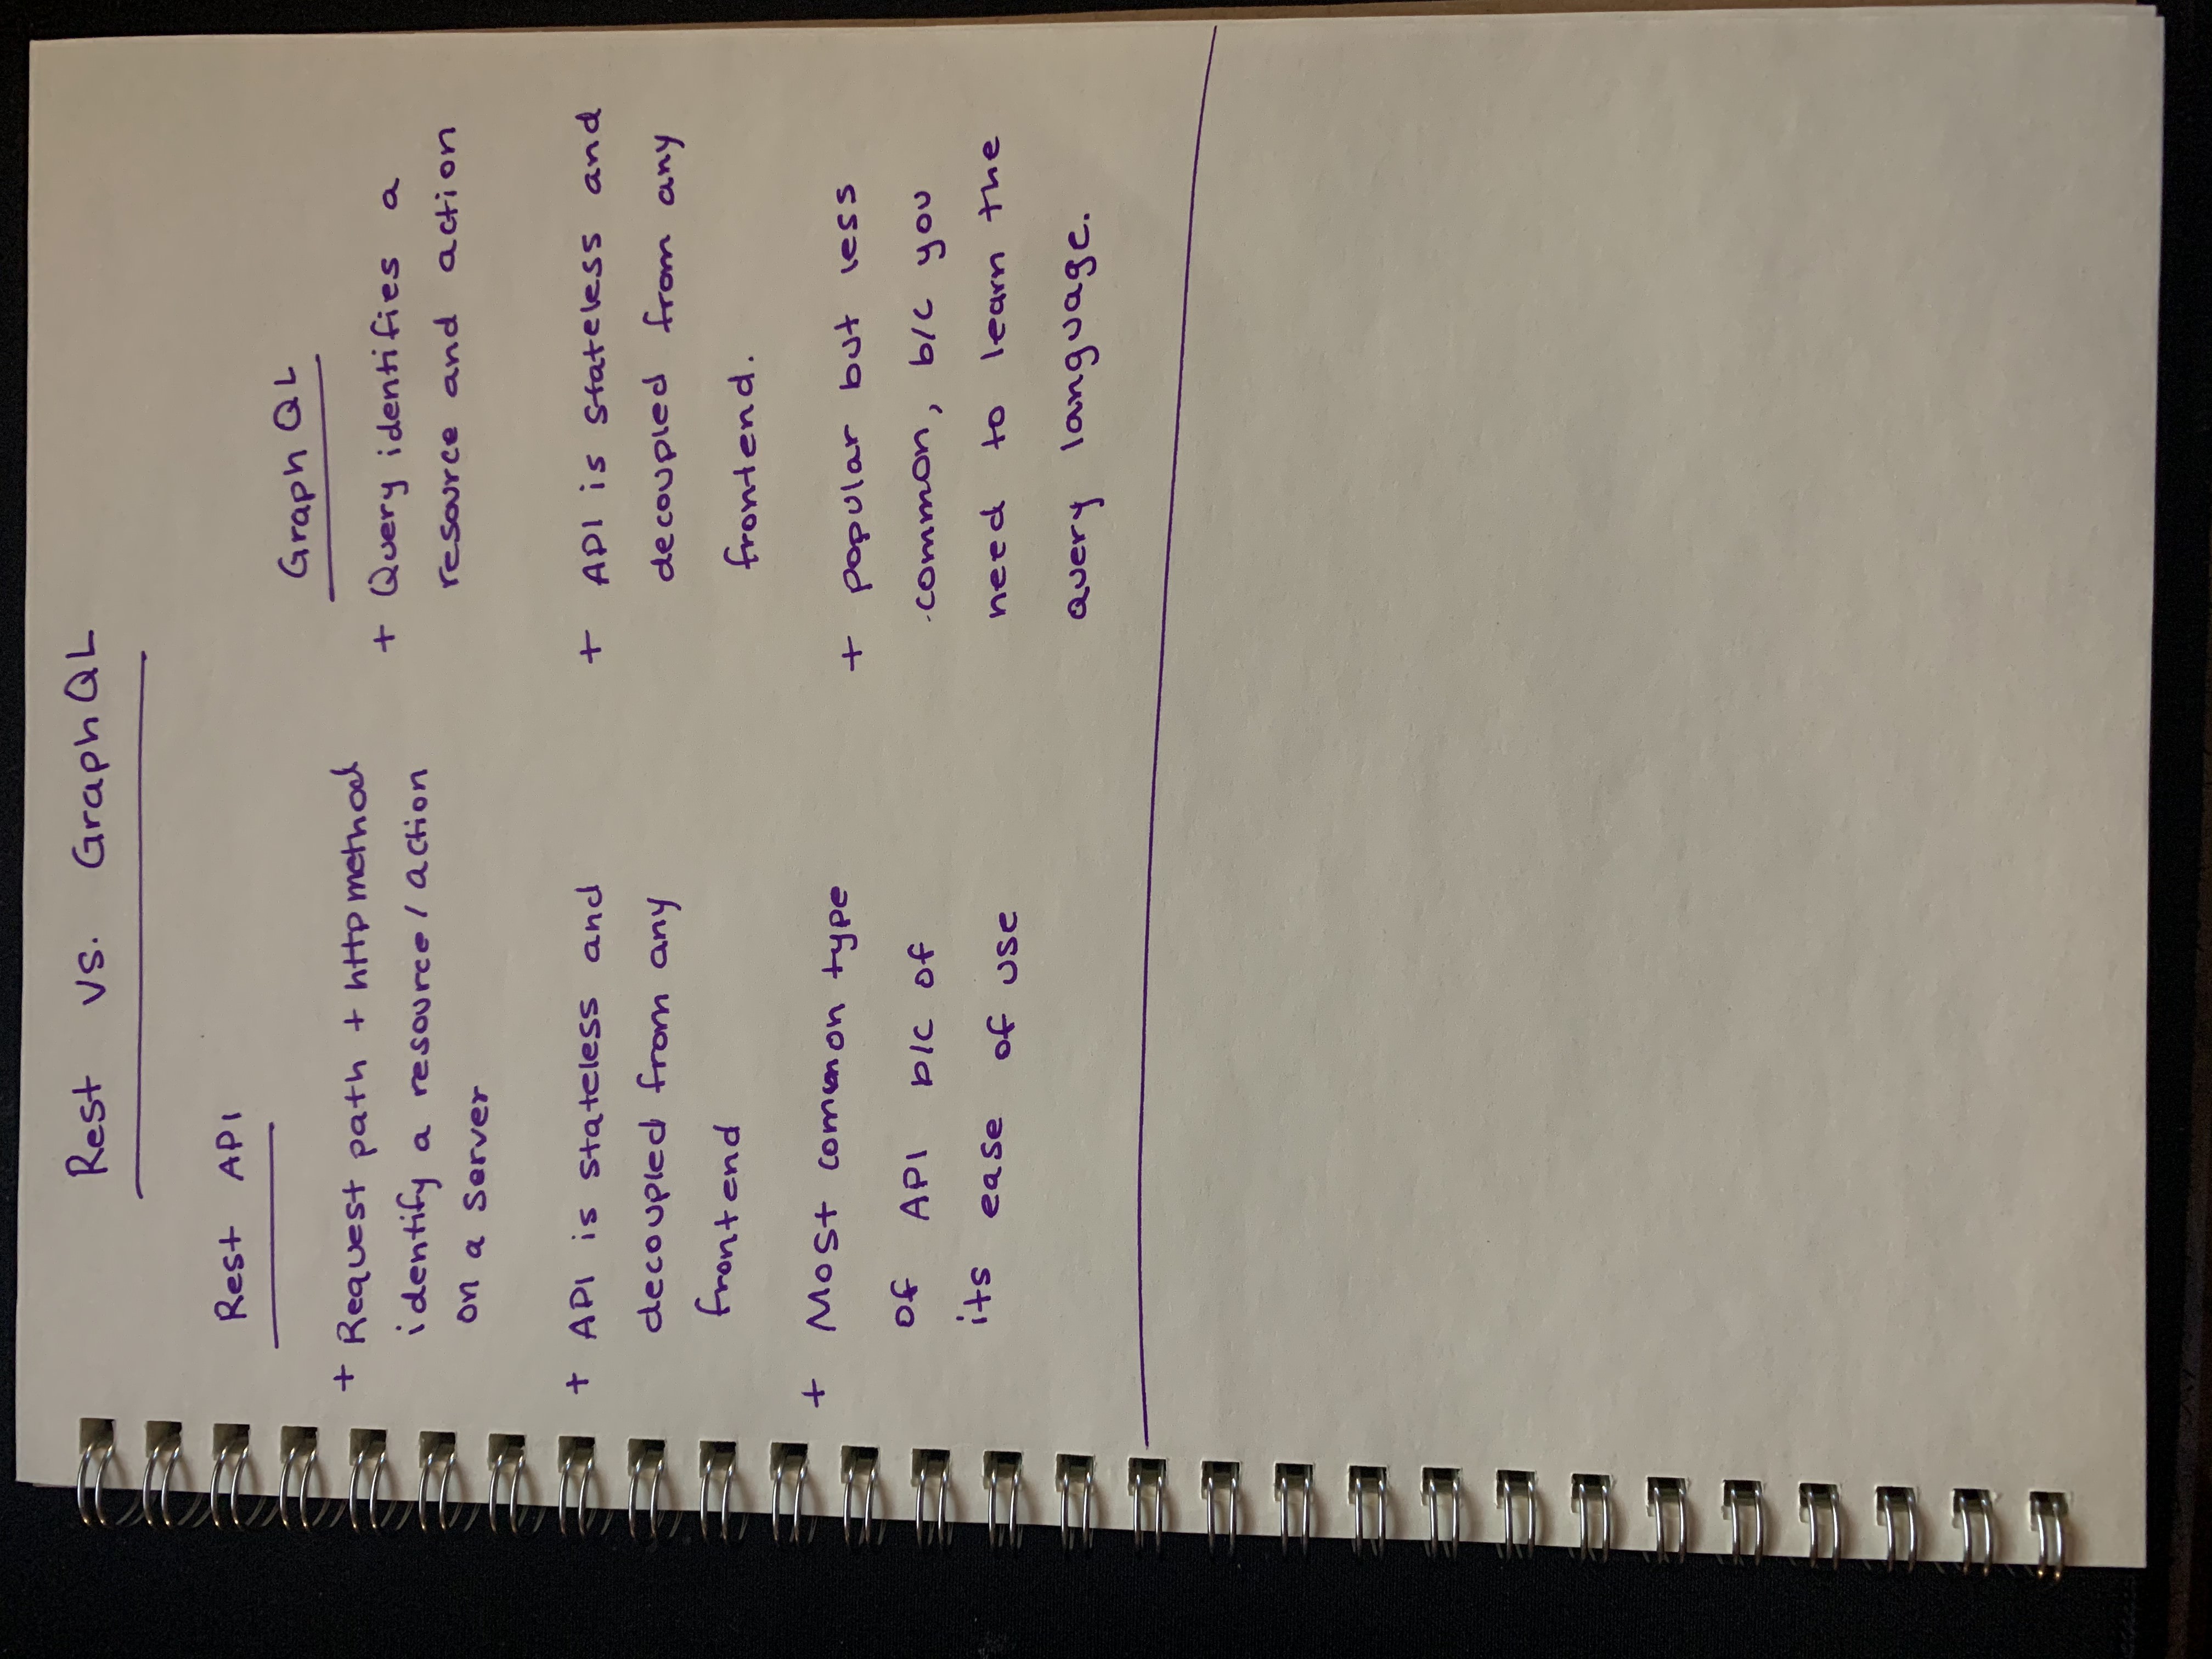 Rest vs. GraphQL
Rest API
+ Request path + http method
identify a resource / action
on a server
+ API is stateless and
decoupled from any
frontend
+ Most common type
of API b/c of
its ease of use
GraphQL
+ Query identifies a
resource and action
+ API is stateless and
decoupled from any
frontend.
+ popular but less
common, b/c you
need to learn the
query language.